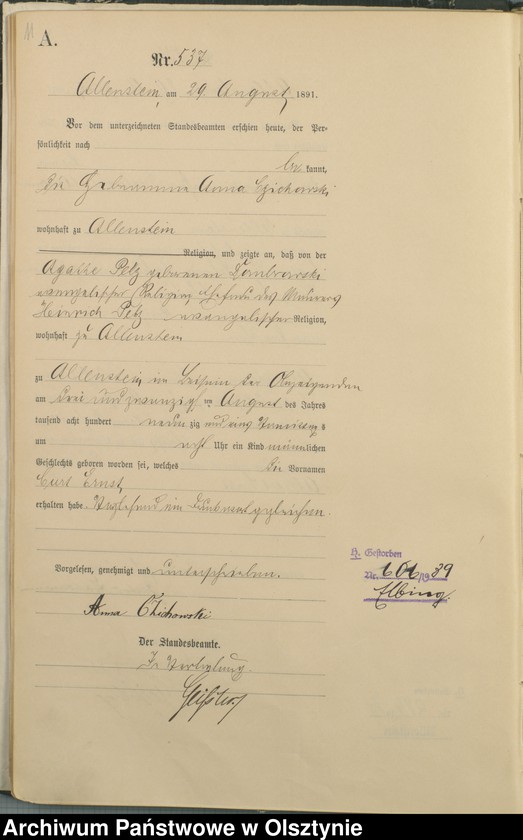 11
A.
Nr. 537
Allenstein, am 29 August 1891.
Vor dem unterzeichneten Standesbeamten erschien heute, der Per-
sönlichkeit nach
be kannt,
die Hebamme Anna
wohnhaft zu Allenstein
Religion, und zeigte an, daß von der
Agathe Petz geborenen Dombrowski
evangelischer Religion Ehefrau des Maurers
Heinrich Petz evangelischer Religion,
wohnhaft zu Allenstein
zu Allenstein im Beisein der Anzeigenden
am drei und zwanzigsten August des Jahres
tausend acht hundert neunzig und eins Vormittags
um acht Uhr ein Kind männlichen
Geschlechts geboren worden sei, welches die Vornamen
Curt Ernst
erhalten habe.
Vorgelesen, genehmigt und unterschrieben.
Anna
Der Standesbeamte.
In Vertretung
H. Gestorben
Nr. 601/1939
Elbing.
Archiwum Państwowe w Olsztynie